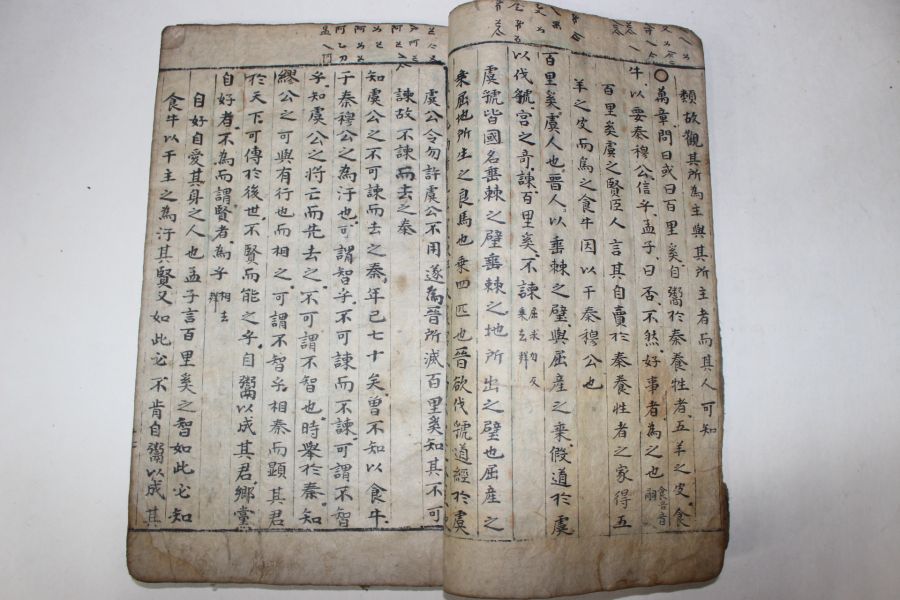 類故觀其所為主與其所主者而其人可知
萬章問曰或曰百里奚自鬻於秦養牲者五羊之皮食
牛以要秦穆公信乎孟子曰否不然好事者為之也
百里奚虞之賢臣人言其自賣於秦養牲者之家得五
羊之皮而為之食牛因以干秦穆公也
百里奚虞人也晋人以垂棘之璧與屈産之乗假道於虞
以伐虢宮之奇諫百里奚不諫
虞虢皆國名垂棘之璧垂棘之地所出之璧也屈産之
乗屈地所生之良馬也乗四匹也晉欲伐虢道經於虞
虞公令勿許虞公不用遂為晉所滅百里奚知其不可
諫故不諫而去之秦
知虞公之不可諫而去之秦年已七十矣曽不知以食牛
于秦穆公之為汙也可謂智乎不可諫而不諫可謂不智
乎知虞公之将亡而先去之不可謂不智也時舉於秦知
繆公之可與有行也而相之可謂不智乎相秦而顕其君
於天下可傳於後世不賢而能之乎自鬻以成其君鄉黨
自好者不為而謂賢者為乎
自好自愛其身之人也孟子言百里奚之智如此必知
食牛以干主之為汙其賢又如此必不肯自鬻以成其